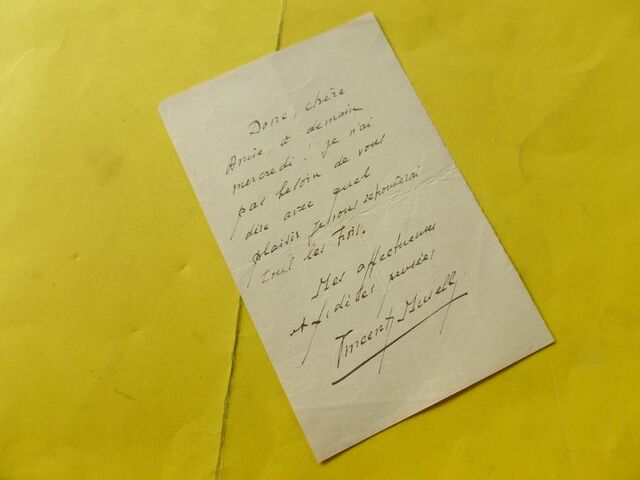 Donc, chère
Amie, à demain
mercredi ! Je n'ai
pas besoin de vous
dire avec quel
plaisir je vous retrouverai
tous les trois.
Mes affectueuses
et fidèles pensées
Vincent Muselli